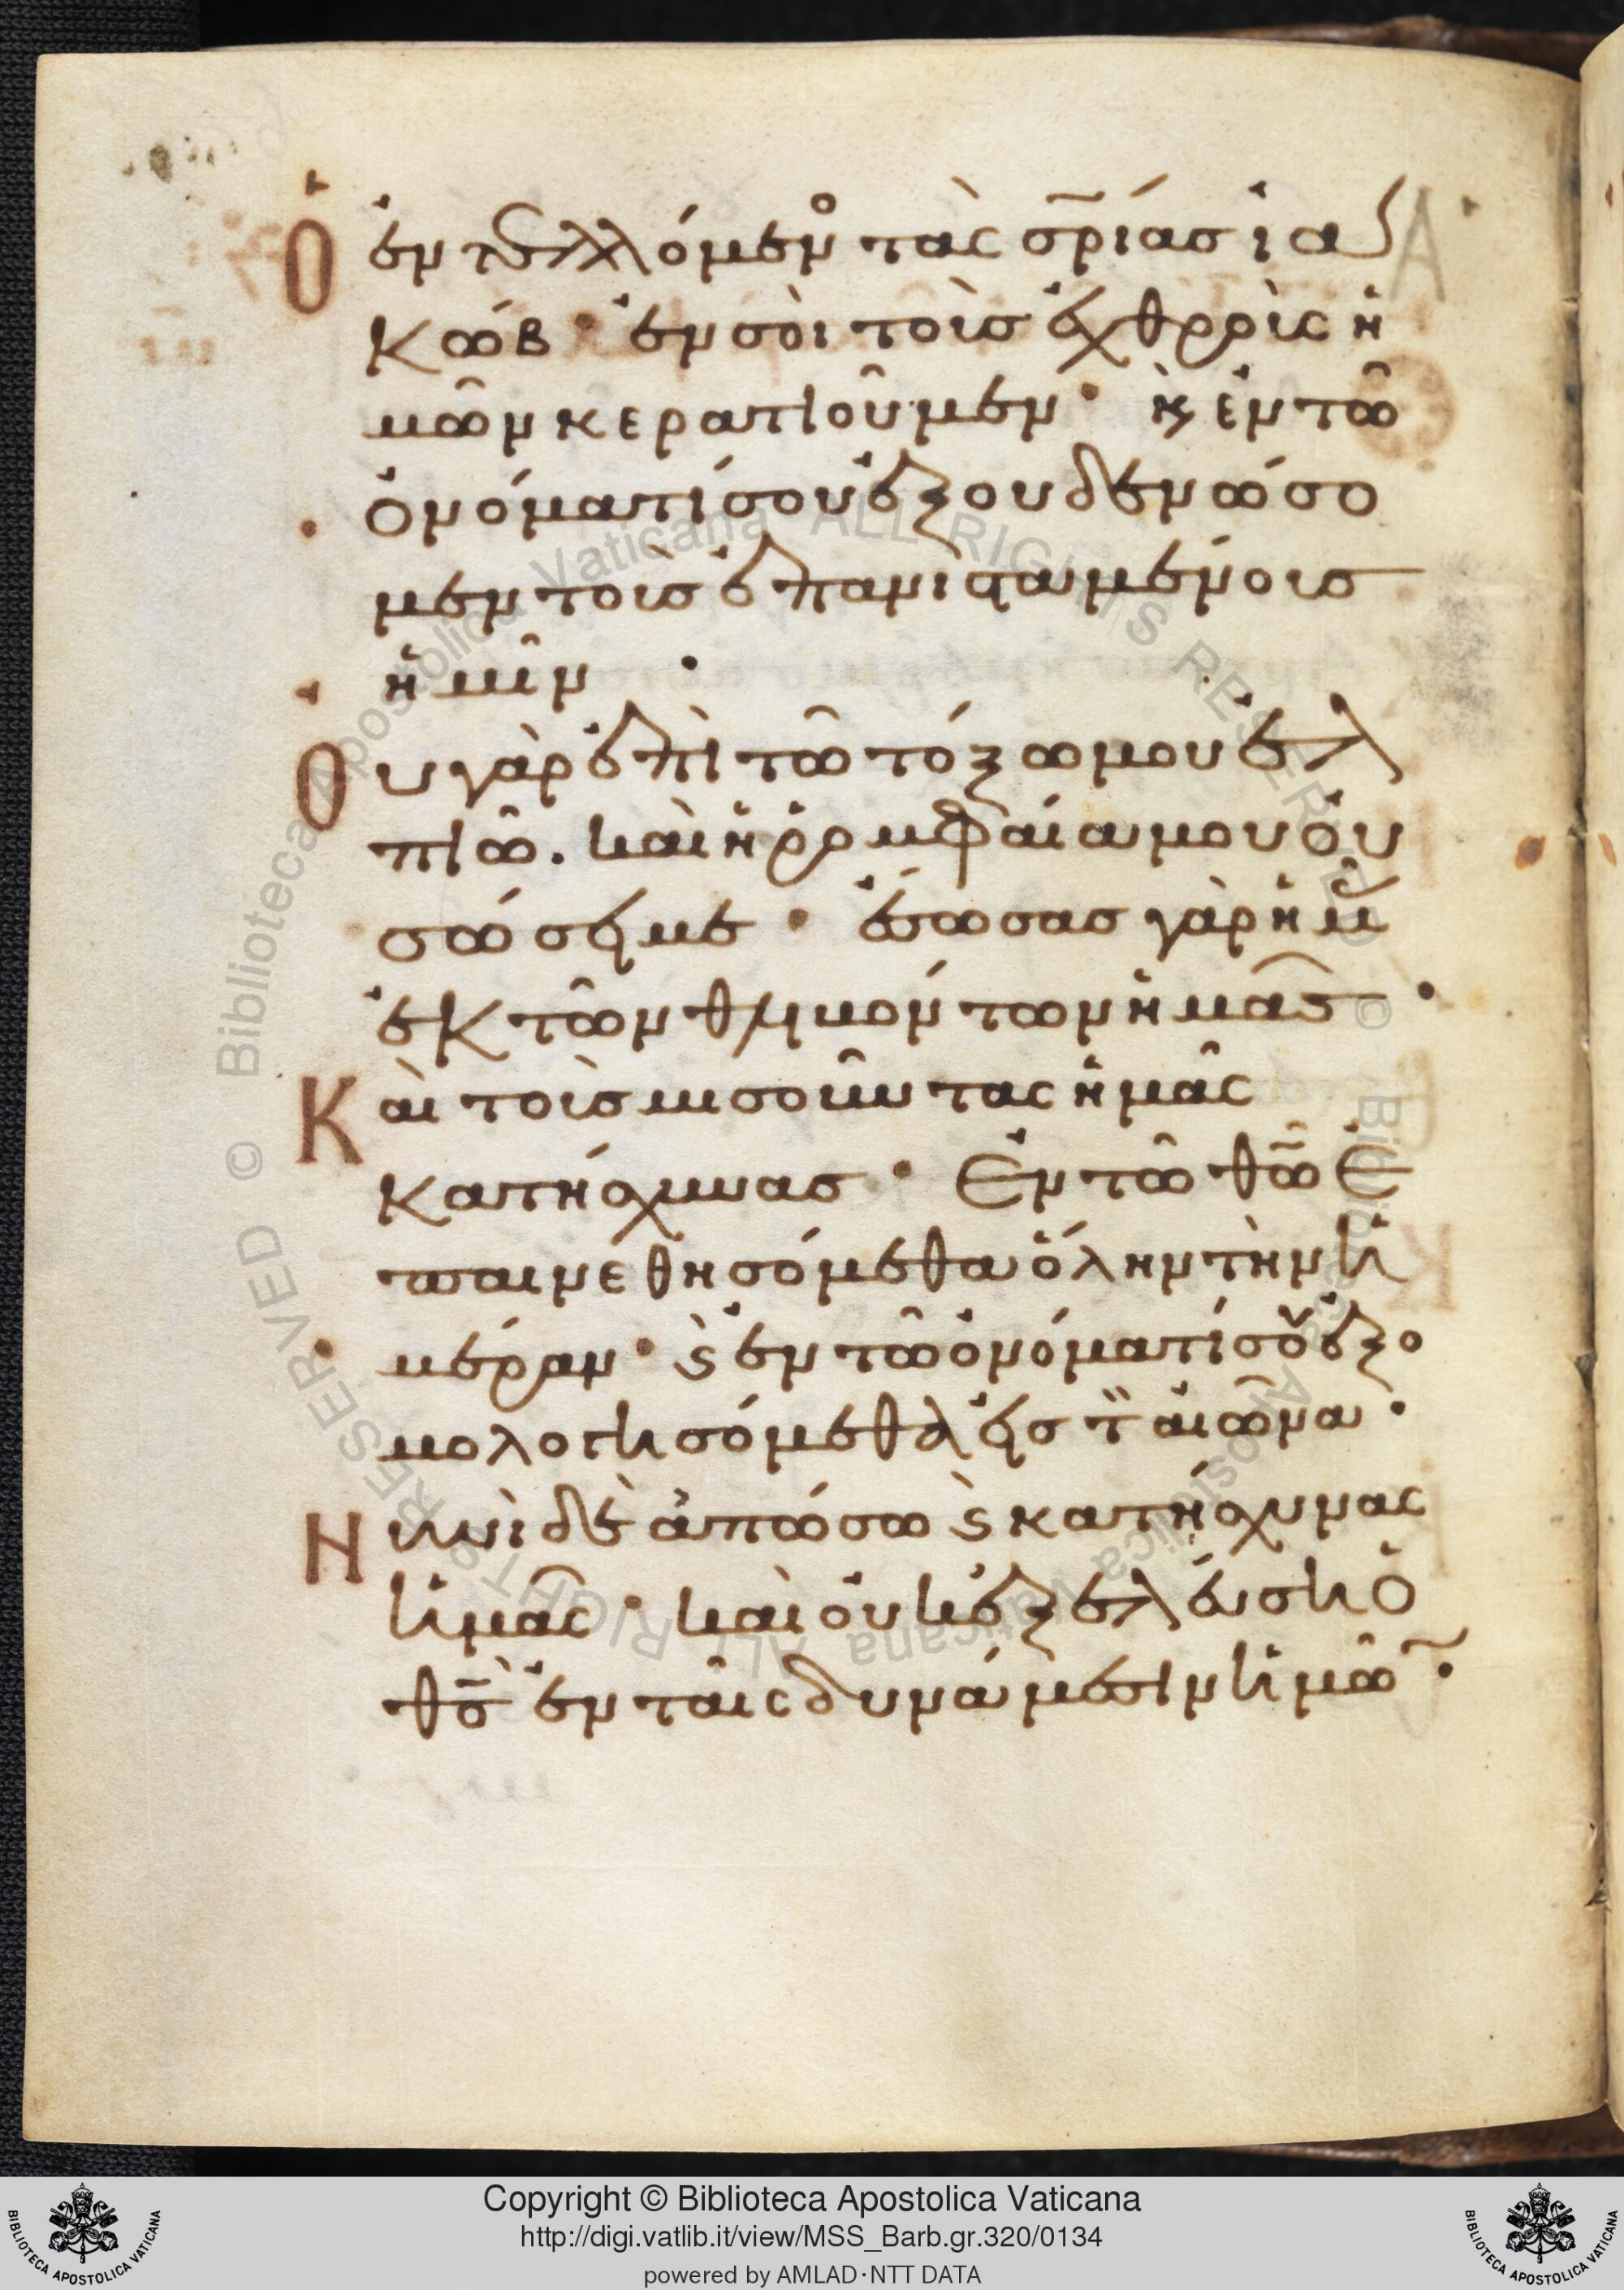 Ὁ ἐντελλόμενος τὰς σ̅ρ̅ίασ ἰα
κώβ · ἐν σοὶ τοὶσ ἐχθροὶς ἡ
μῶν κερατιοῦμεν · κ̀ ἐν τῶ
ὀνόματί σου ἐξουδενώσο
μεν τοὶσ ἐπανισταμένοισ
ἡμῖν ·
Ὀυ γὰρ ἐπὶ τῶ τόξω μου ἐλ
πιῶ . καὶ ἡ ῥομφαία μου ὀυ
σώσει με · ἔσωσασ γὰρ ἡμᾶ
ἐκ τῶν θλιβόντων ἡμᾶσ ·
Καὶ τοὶσ μισοῦντας ἡμᾶς
κατήσχυνασ · Ἐν τῶ θ̅ῶ̅ ἐ
παινεθησόμεθα ὅλην τὴν ἡ
μέραν · ϛ̀ ἐν τῶ ὀνόματί σου ἐξο
μολογησόμεθα ἐισ τ̈ αἰῶνα ·
Νυνὶ δὲ ἀπώσω ϛ̀ κατήσχυνας
ἡμᾶς · καὶ ὀυκ ἐξελέυση ὁ
θ̅ς̅ ἐν ταῖς δυνάμεσιν ἡμῶ̅ ·
Copyright © Biblioteca Apostolica Vaticana
http://digi.vatlib.it/view/MSS_Barb.gr.320/0134
powered by AMLAD·NTT DATA
BIBLIOTECA APOSTOLICA VATICANA
BIBLIOTECA APOSTOLICA VATICANA
© Biblioteca Apostolica Vaticana ALL RIGHTS RESERVED
© Biblioteca Apostolica Vaticana ALL RIGHTS RESERVED